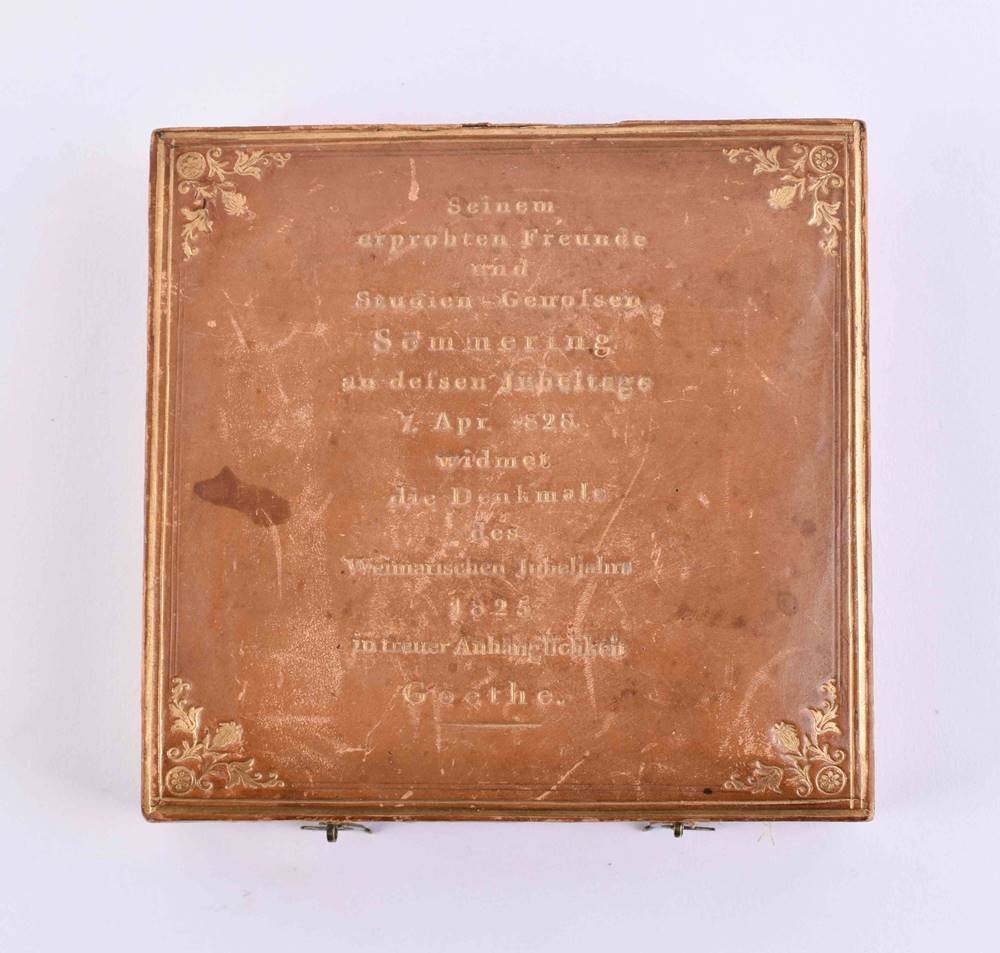 Seinem
erprobten Freunde
und
Studien-Genoſsen
Sömmering
an deſsen Jubeltage
7. Apr. 1828.
widmet
die Denkmale
des
Weimarischen Jubeljahrs
1825
in treuer Anhänglichkeit
Goethe.